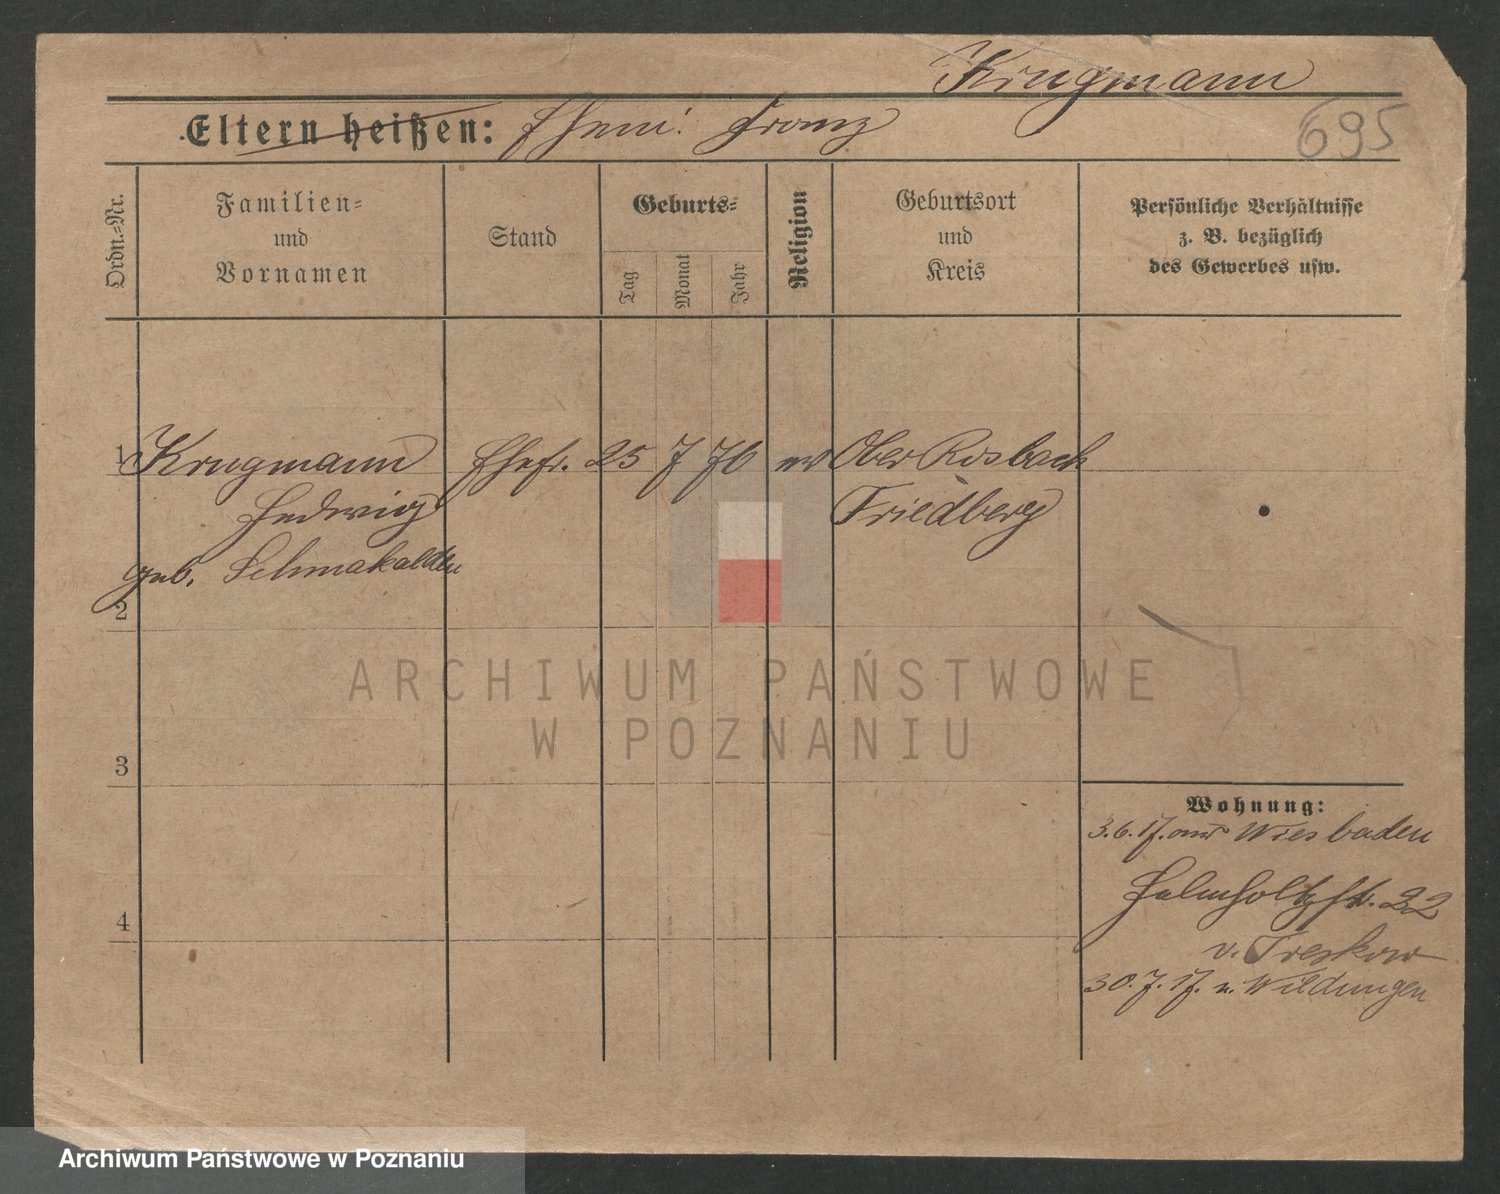 Krugmann
Eltern heißen: Ehem: Franz
695
Ordn.-Nr.
Familien-
und
Vornamen
Stand
Geburts-
Tag
Monat
Jahr
Religion
Geburtsort
und
Kreis
Persönliche Verhältnisse
z. B. bezüglich
des Gewerbes usw.
1 Krugmann Ehefr. 25 7 70 ev Ober Rosbach
Hedwig Friedberg
geb. Schmakalden
2
ARCHIWUM PAŃSTWOWE
W POZNANIU
3
Wohnung:
3.6.17. aus Wiesbaden
Helmholtzst. 22
4
v. Treskow
30.7.17. n. Wildungen
Archiwum Państwowe w Poznaniu